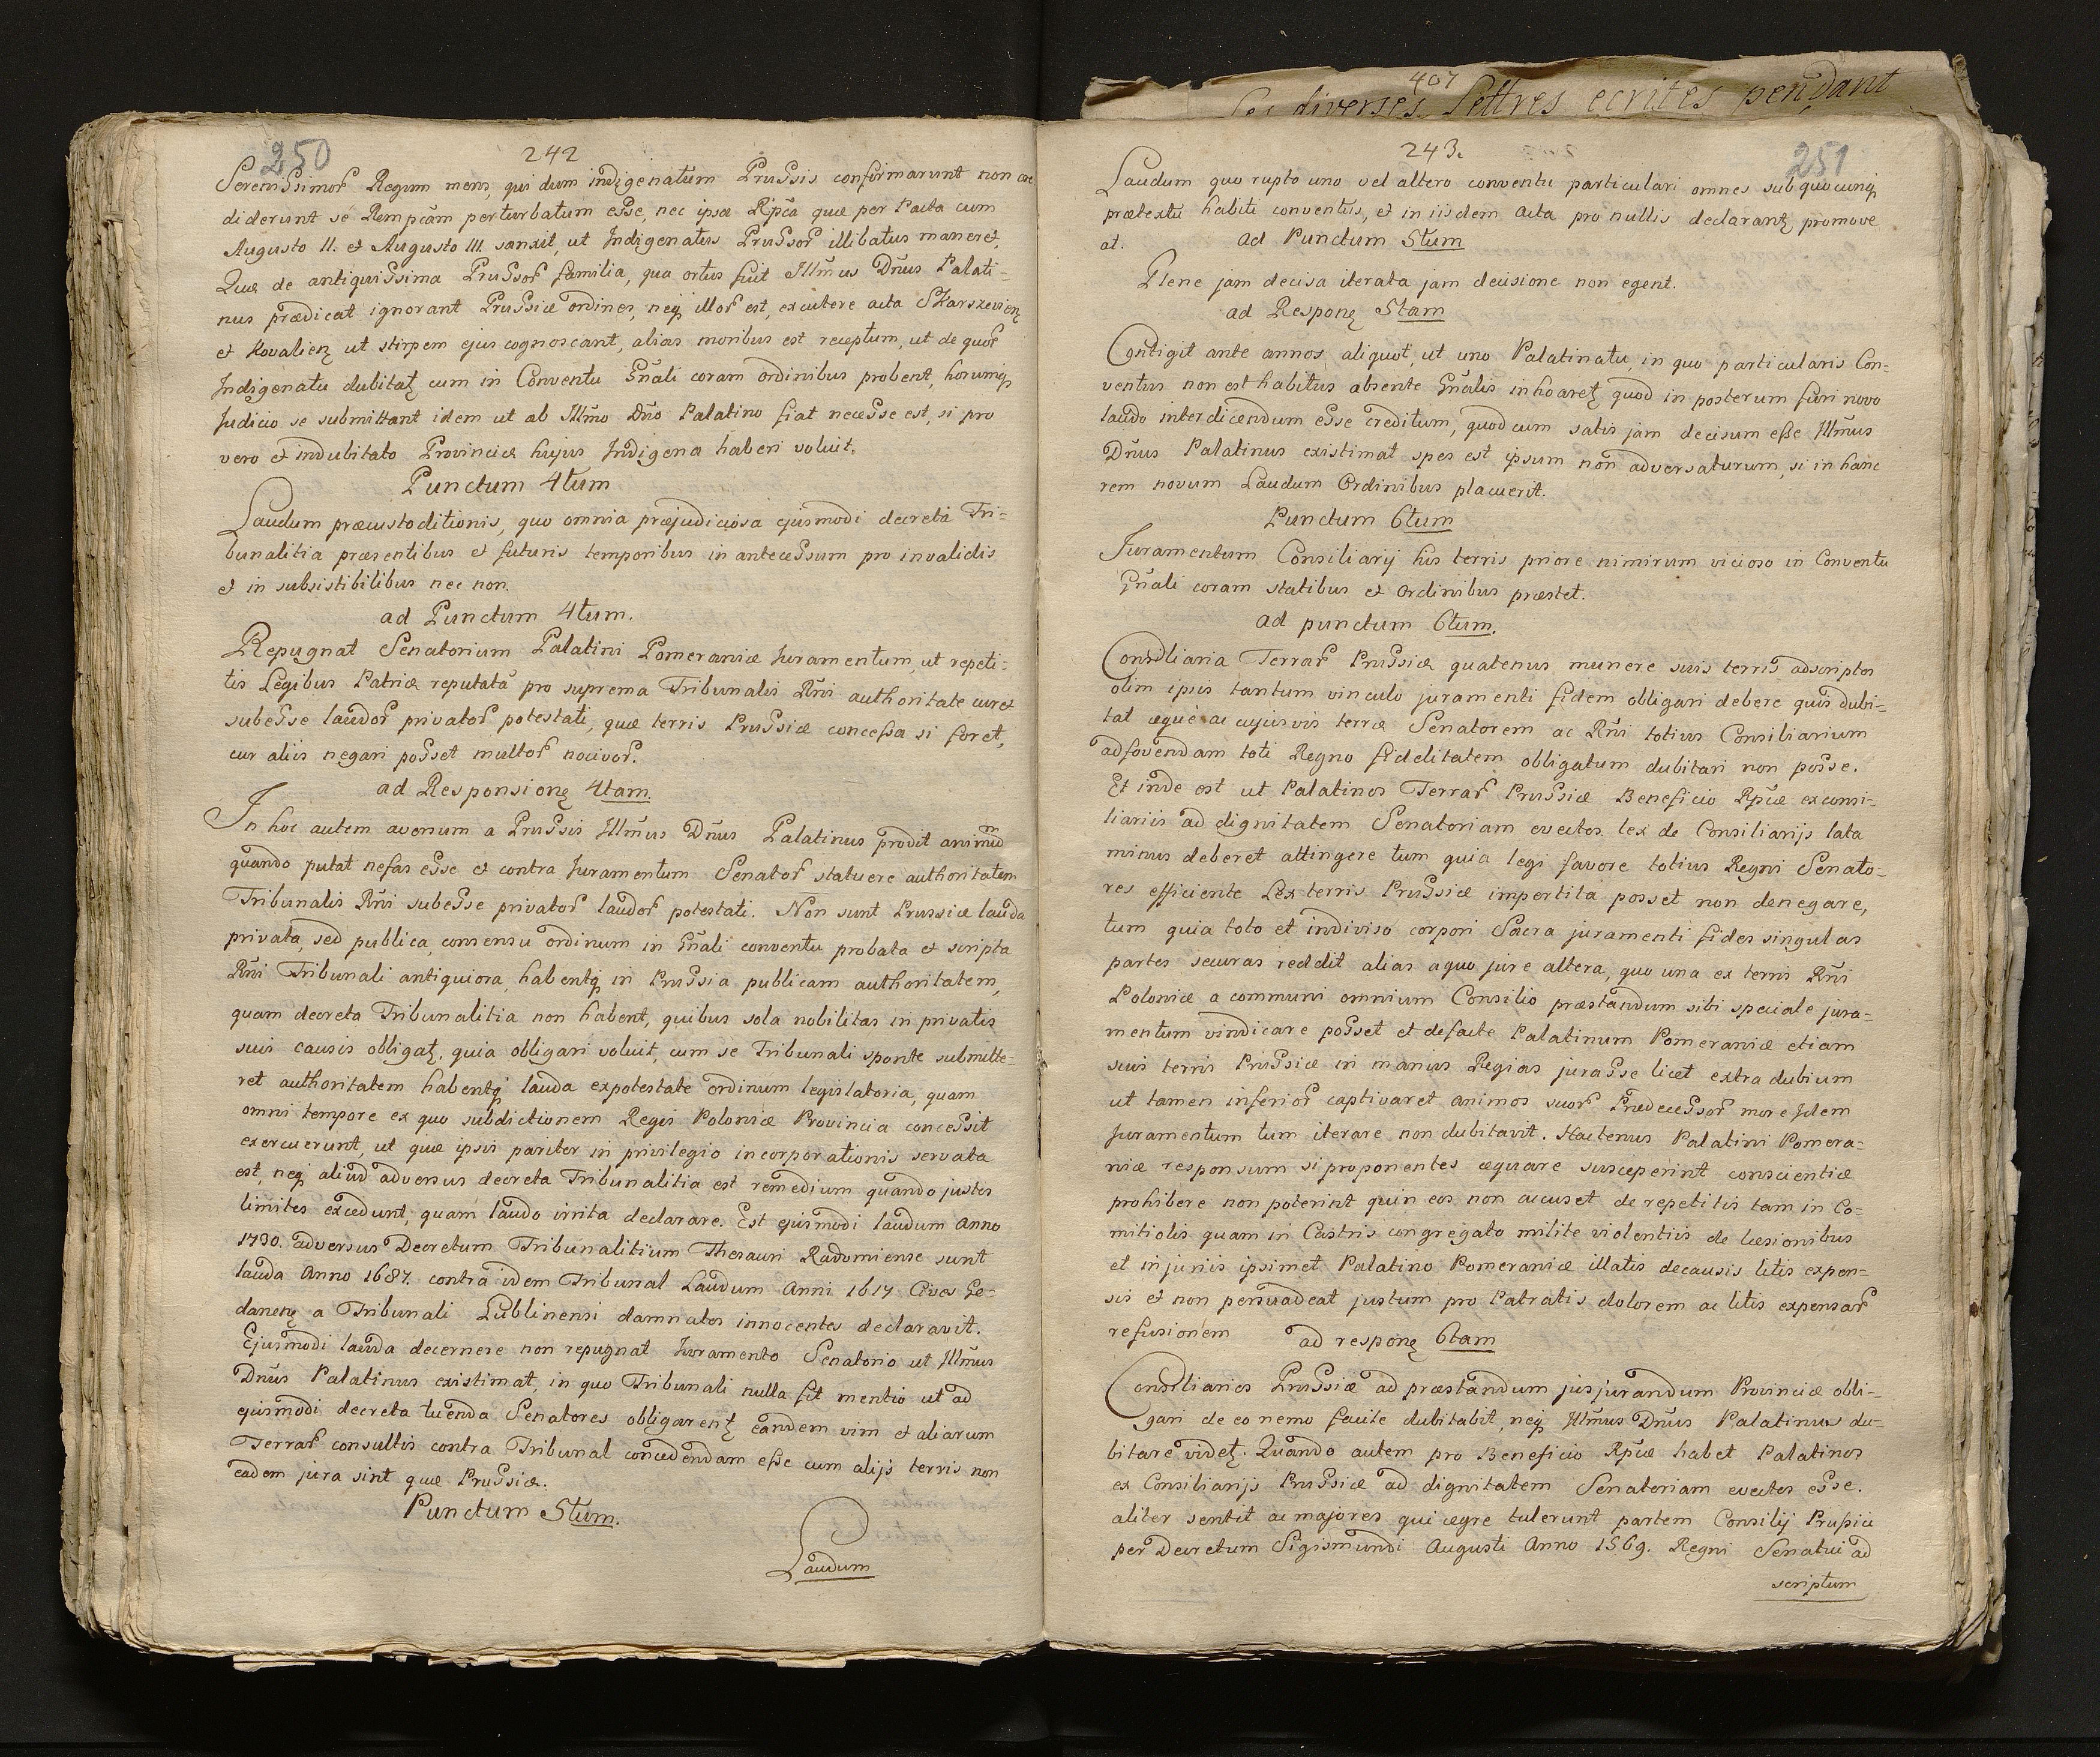 250
242
Serenissimor Regum mens, qui dum indigenatum Prussis confirmarunt non cre
diderunt se Rempcam perturbatum esse, nec ipsa Rpca quæ per Pacta cum
Augusto II. et Augusto III. sanxit, ut Indigenatus Prussor illibatus maneret,
Quæ de antiquissima Prussor familia, qua ortus fuit Illmus Dnus Palati-
nus prædicat ignorant Prussiæ ordines, neq illor est, excutere acta Skarszewien
et Kovalien ut stirpem ejus cognoscant, alias moribus est receptum, ut de quor
Indigenatu dubitat cum in Conventu Gnali coram ordinibus probent, horumq
Judicio se submittant idem ut ab Illmo Dno Palatino fiat necesse est, si pro
vero et indubitato Provinciæ hujus Indigena haberi voluit.
Punctum 4tum
Laudum præcustoditionis, quo omnia præjudiciosa ejusmodi decreta Tri-
bunalitia præsentibus et futuris temporibus in antecessum pro invalidis
et in subsistibilibus nec non.
ad Punctum 4tum.
Repugnat Senatorium Palatini Pomeraniæ Juramentum, ut repeti-
tis Legibus Patriæ reputata pro suprema Tribunalis Rñi authoritate curet
subesse laudor privator potestati, quæ terris Prussiæ concessa si foret,
cur aliis negari posset multor nocivor.
ad Responsione 4tam.
In hoc autem avenum a Prussis Illmus Dnus Palatinus prodit animum
quando putat nefas esse et contra Juramentum Senator statuere authoritatem
Tribunalis Rñi subesse privator laudor potestati. Non sunt Prussiæ lauda
privata, sed publica, consensu ordinum in Gnali conventu probata et scripta
Rñi Tribunali antiquiora, habentq in Prussia publicam authoritatem,
quam decreta Tribunalitia non habent, quibus sola nobilitas in privatis
suis causis obligat, quia obligari voluit, cum se Tribunali sponte submitte-
ret authoritatem habentq lauda expotestate ordinum legislatoria, quam
omni tempore ex quo subdictionem Regis Poloniæ Provincia concessit
exercuerunt, ut quæ ipsis pariter in privilegio incorporationis servata
est, neq aliud adversus decreta Tribunalitia est remedium quando justos
limites excedunt, quam laudo irrita declarare. Est ejusmodi laudum Anno
1730. adversus Decretum Tribunalitium Thesauri Radomiense sunt
lauda Anno 1687. contra idem Tribunal Laudum Anni 1617 Cives Ge-
danens a Tribunali Lublinensi damnatos innocentes declaravit.
Ejusmodi lauda decernere non repugnat Juramento Senatorio ut Illmus
Dnus Palatinus existimat, in quo Tribunali nulla fit mentio ut ad
ejusmodi decreta tuenda Senatores obligarent eandem vim et aliarum
Terrar consultis contra Tribunal concedendam esse cum alijs terris non
eadem jura sint quæ Prussiæ.
Punctum 5tum.
Laudum
407
Les diverses Lettres ecrites pendant
243.
251
Laudum quo rupto uno vel altero conventu particulari omnes sub quocunq
prætextu habiti conventus, et in iisdem acta pro nullis declarant promove
at. ad Punctum 5tum
Plene jam decisa iterata jam decisione non egent.
ad Respone 5tam
Contigit ante annos, aliquot, ut uno Palatinatu, in quo particularis Con-
ventus non est habitus absente Gnalis inhoaret, quod in posterum fieri novo
laudo interdicendum esse creditum, quod cum satis jam decisum esse Illmus
Dnus Palatinus existimat spes est ipsum non adversaturum, si in hanc
rem novum Laudum Ordinibus placuerit.
Punctum 6tum
Juramentum Consiliarij his terris priore nimirum vicioso in Conventu
Gnali coram statibus et Ordinibus præstet.
ad punctum 6tum.
Consiliaria Terrar Prussiæ quatenus munere suis terris adscriptos
olim ipsis tantum vinculo juramenti fidem obligari debere quis dubi-
tat æque ac cujusvis terræ Senatorem ac Rñi totius Consiliarium
adfovendam toti Regno fidelitatem obligatum dubitari non posse.
Et inde est ut Palatinos Terrar Prussiæ Beneficio Rpcæ exconsi-
liariis ad dignitatem Senatoriam evectos lex de Consiliarijs lata
minus deberet attingere tum quia legi favore totius Regni Senato-
res efficiente Lex terris Prussiæ impertita posset non denegare,
tum quia toto et indiviso corpori Sacra juramenti fides singulas
partes securas reddit alias aquo jure altera, quo una ex terris Rñi
Poloniæ a communi omnium Consilio præstandum sibi speciale jura-
mentum vindicare posset et defacte Palatinum Pomeraniæ etiam
suis terris Prussiæ in manus Regias jurasse licet extra dubium
ut tamen inferior captivaret animos suor Prædecessor more Idem
Juramentum tum iterare non dubitavit. Hactenus Palatini Pomera-
niæ responsum si proponentes æquare susceperint conscientiæ
prohibere non poterint quin eos non accuset de repetitis tam in Co-
mitiolis quam in Castris congregato milite violentiis de læsionibus
et injuriis ipsimet Palatino Pomeraniæ illatis decausis litis expen-
sis et non persuadeat justum pro Patratis dolorem ac litis expensar
refusionem ad respone 6tam
Consiliarios Prussiæ ad præstandum jusjurandum Provinciæ obli-
gari de eo nemo facile dubitabit, neq Illmus Dnus Palatinus du-
bitare videt. Quando autem pro Beneficio Rpcæ habet Palatinos
ex Consiliarijs Prussiæ ad dignitatem Senatoriam evectos esse.
aliter sentit ac majores qui ægre tulerunt partem Consilij Prussici
per Decretum Sigismundi Augusti Anno 1569. Regni Senatui ad
scriptum